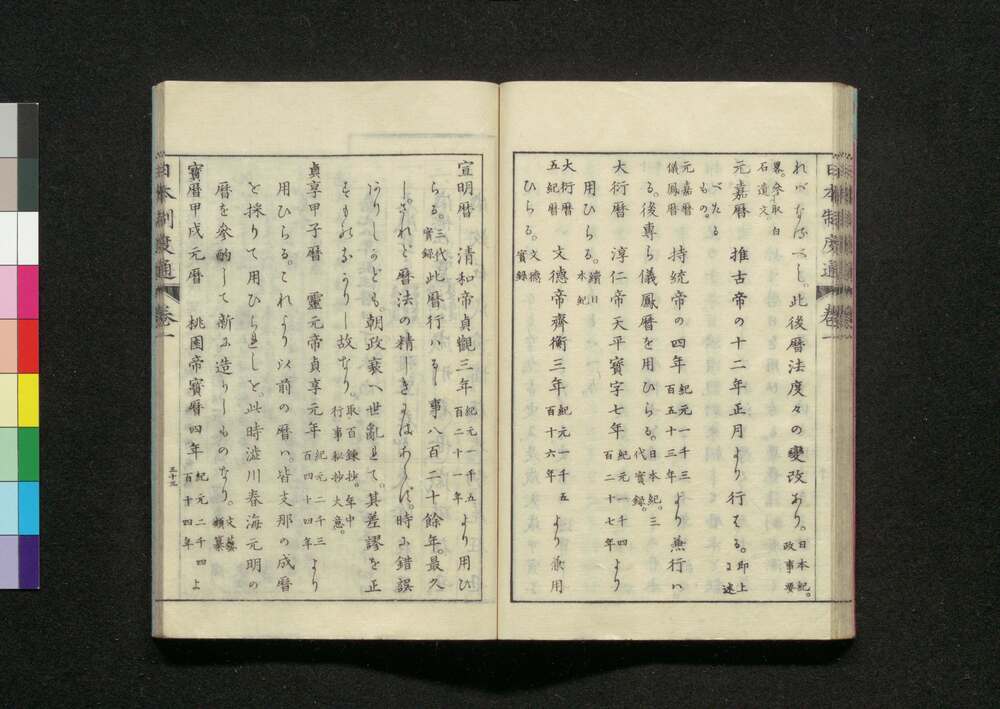 日本制度通 卷一
れバなるべし。此後曆法度々の變改あり。日本紀。政事要
畧。參取 白石遺文。
元嘉曆 推古帝の十二年正月より行はる。即上に述
べたるもの。
元嘉曆 儀鳳曆 持統帝の四年 紀元一千三百五十三年 より兼行は
る。後專ら儀鳳曆を用ひらる。日本紀。三代實録。
大衍曆 淳仁帝天平寶字七年 紀元一千四百二十七年 より
用ひらる。續日本紀
大衍曆 五紀曆 文德帝齊衡三年 紀元一千五百十六年 より兼用
ひらる。文德實録
宣明曆 清和帝貞觀三年 紀元一千五百二十一年 より用ひ
らる。三代實録 此曆行ハるゝ事八百二十餘年。最久
し。されど曆法の精しきにはあらず。時に錯誤
ありしかども。朝政衰へ世亂れて。其差謬を正
すものなかりし故なり。取百錬抄。年中行事秘抄大意。
貞享甲子曆 靈元帝貞享元年 紀元二千三百四十四年 より
用ひらる。これより以前の曆ハ。皆支那の成曆
を採りて用ひられしを。此時澁川春海元明の
曆を參酌して新に造りしものなり。文藝類纂
寶曆甲戌元曆 桃園帝寶曆四年 紀元二千四百十四年 よ
日本制度通 卷一
三十三